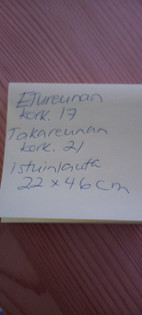 Etureunan
kork. 17
Takareunan
kork. 21
Istuinlauta
22 x 46 cm